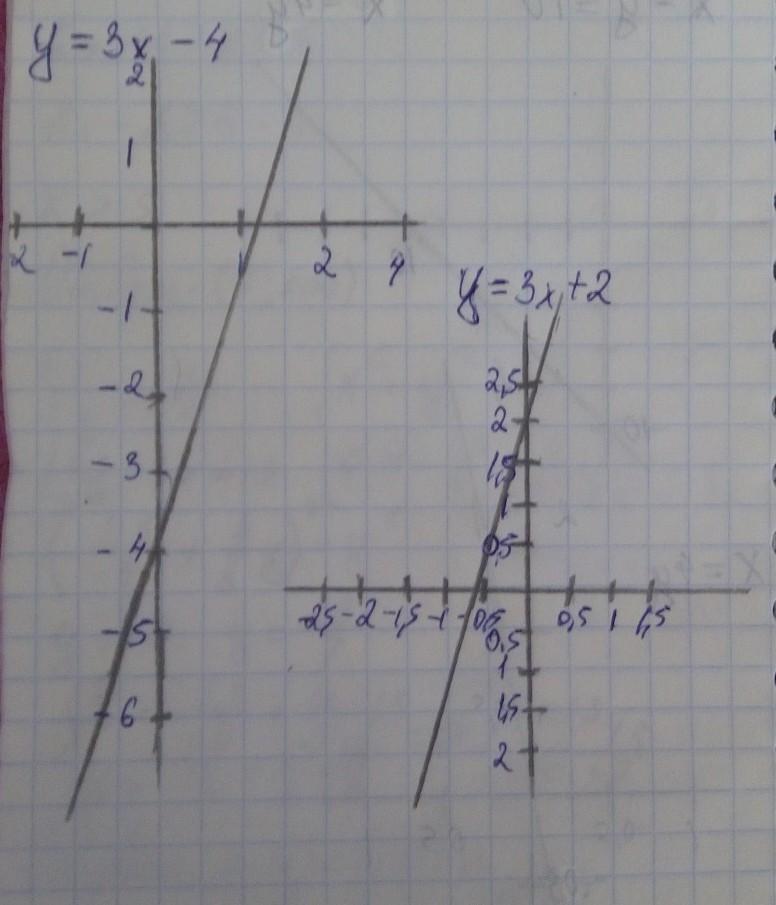 y = 3x - 4
2
1
2 -1 1 2 4
-1
-2
-3
-4
-5
-6
y = 3x + 2
2,5
2
1,5
1
0,5
-2,5 -2 -1,5 -1 -0,5 0,5 1 1,5
0,5
1
1,5
2